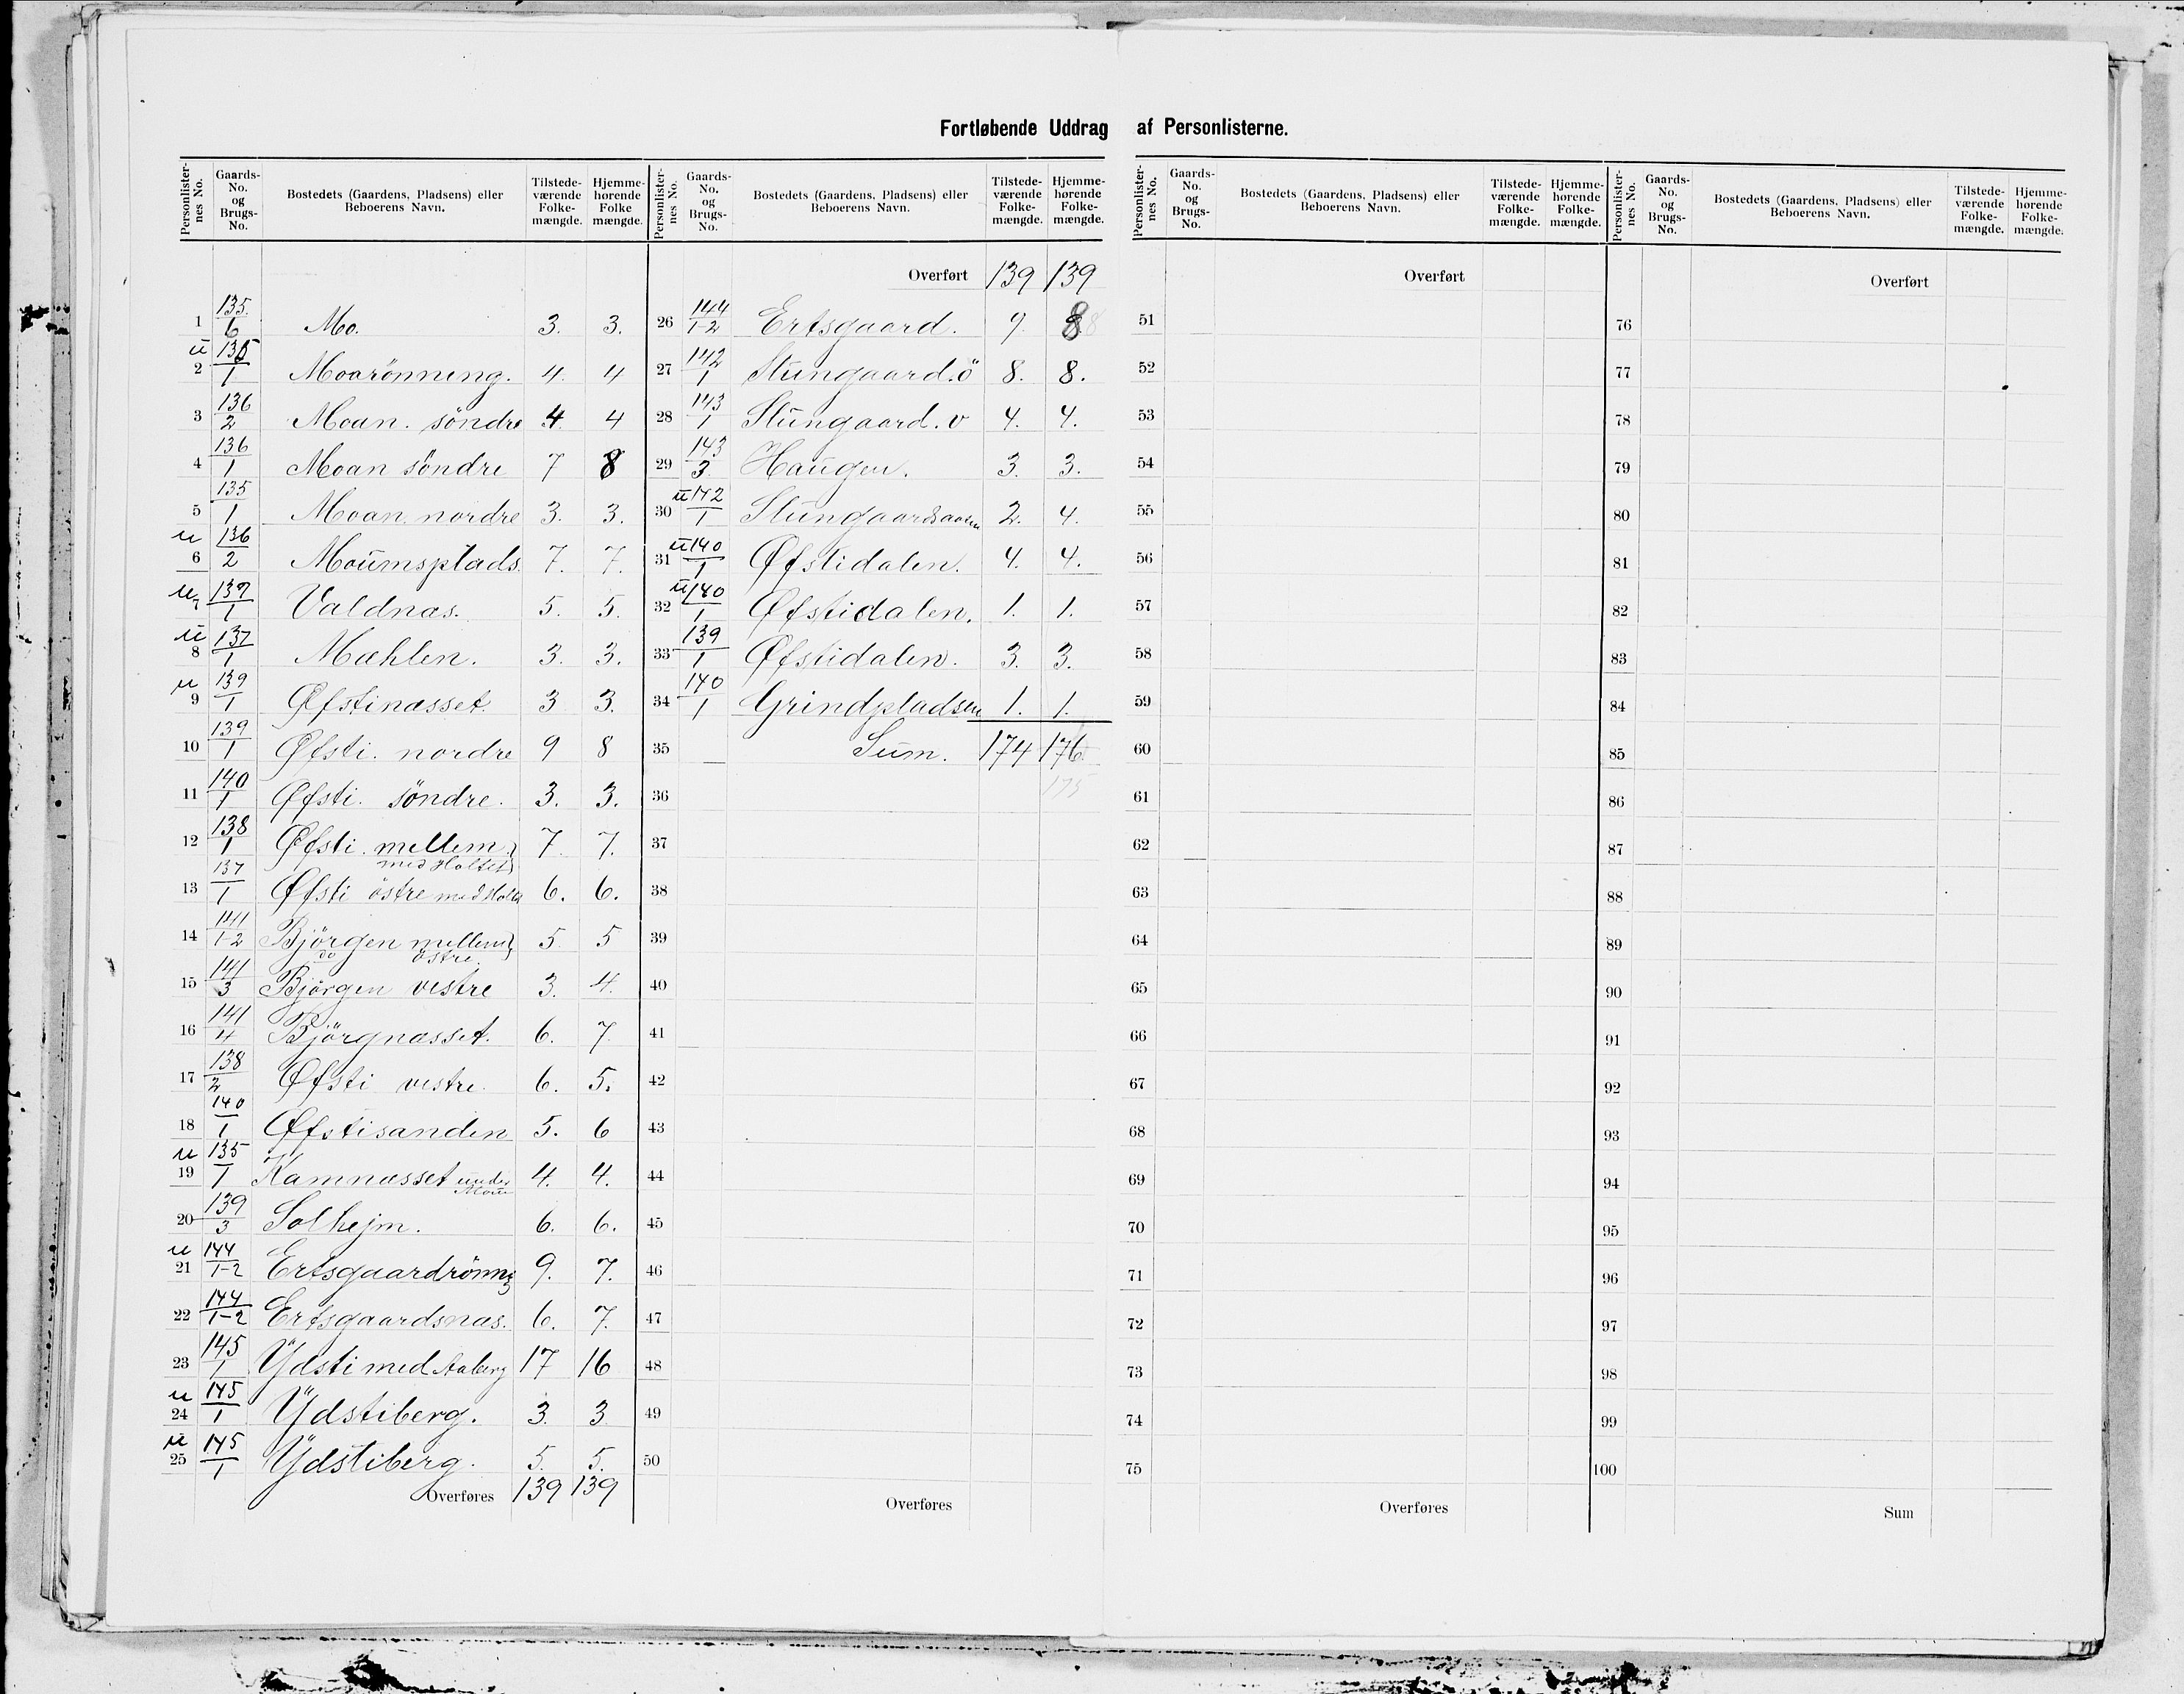 Fortløbende Uddrag af Personlisterne.
Personlister-nes No. Gaards-No. og Brugs-No. Bostedets (Gaardens, Pladsens) eller Beboerens Navn. Tilstede-værende Folke-mængde. Hjemme-hørende Folke mængde.
1 135/6 Mo. 3. 3.
u 2 135/1 Moarönning. 4. 4
3 136/2 Moan. söndre 4. 4
4 136/1 Moan söndre 7 8
5 135/1 Moan. nordre 3. 3.
u 6 136/2 Moumsplads. 7. 7.
u 7 137/1 Valdnæs. 5. 5.
u 8 137/1 Mæhlen. 3. 3.
u 9 139/1 Øfstinæsset. 3 3.
10 139/1 Øfsti. nordre 9 8
11 140/1 Øfsti. söndre. 3. 3.
12 138/1 Øfsti. mellem. 7. 7.
med Holtet
13 137/1 Øfsti östre med Holtet 6. 6.
14 141/1-2 Bjørgen mellem 5. 5
do östre.
15 141/3 Bjørgen vestre 3. 4.
16 141/4 Björgnæsset. 6. 7.
17 138/2 Øfsti vestre. 6. 5.
18 140/1 Øfstisanden 5. 6
u 19 135/1 Kamnæsset under 4. 4.
Moan
20 139/3 Solhejm. 6. 6.
u 21 144/1-2 Ertsgaardrönning 9. 7.
22 144/1-2 Ertsgaardsnæs. 6. 7.
23 145/1 Ydsti med Aaberg 17 16
u 24 145/1 Ydstiberg. 3. 3
u 25 145/1 Ydstiberg. 5. 5.
Overføres 139 139
Personlister-nes No. Gaards-No. og Brugs-No. Bostedets (Gaardens, Pladsens) eller Beboerens Navn. Tilstede-værende Folke-mængde. Hjemme-hørende Folke-mængde.
Overført 139 139
26 144/1-2 Ertsgaard. 9. 8 8
27 142/1 Stungaard. ö 8. 8.
28 143/1 Stungaard. v 4. 4.
29 143/3 Haugen. 3. 3.
30 u 142/1 Stungaardsaasen 2. 4.
31 u 140/1 Øfstidalen. 4. 4.
32 u 140/1 Øfstidalen. 1. 1.
33 139/1 Øfstidalen. 3. 3.
34 140/1 Grindpladsen 1. 1.
35 Sum. 174 176
36 175
37
38
39
40
41
42
43
44
45
46
47
48
49
50
Overføres
Personlister-nes No. Gaards-No. og Brugs-No. Bostedets (Gaardens, Pladsens) eller Beboerens Navn. Tilstede-værende Folke-mængde. Hjemme-hørende Folke-mængde.
Overført
51
52
53
54
55
56
57
58
59
60
61
62
63
64
65
66
67
68
69
70
71
72
73
74
75
Overføres
Personlister-nes No. Gaards-No. og Brugs-No. Bostedets (Gaardens, Pladsens) eller Beboerens Navn. Tilstede-værende Folke-mængde. Hjemme-hørende Folke-mængde.
Overført
76
77
78
79
80
81
82
83
84
85
86
87
88
89
90
91
92
93
94
95
96
97
98
99
100
Sum